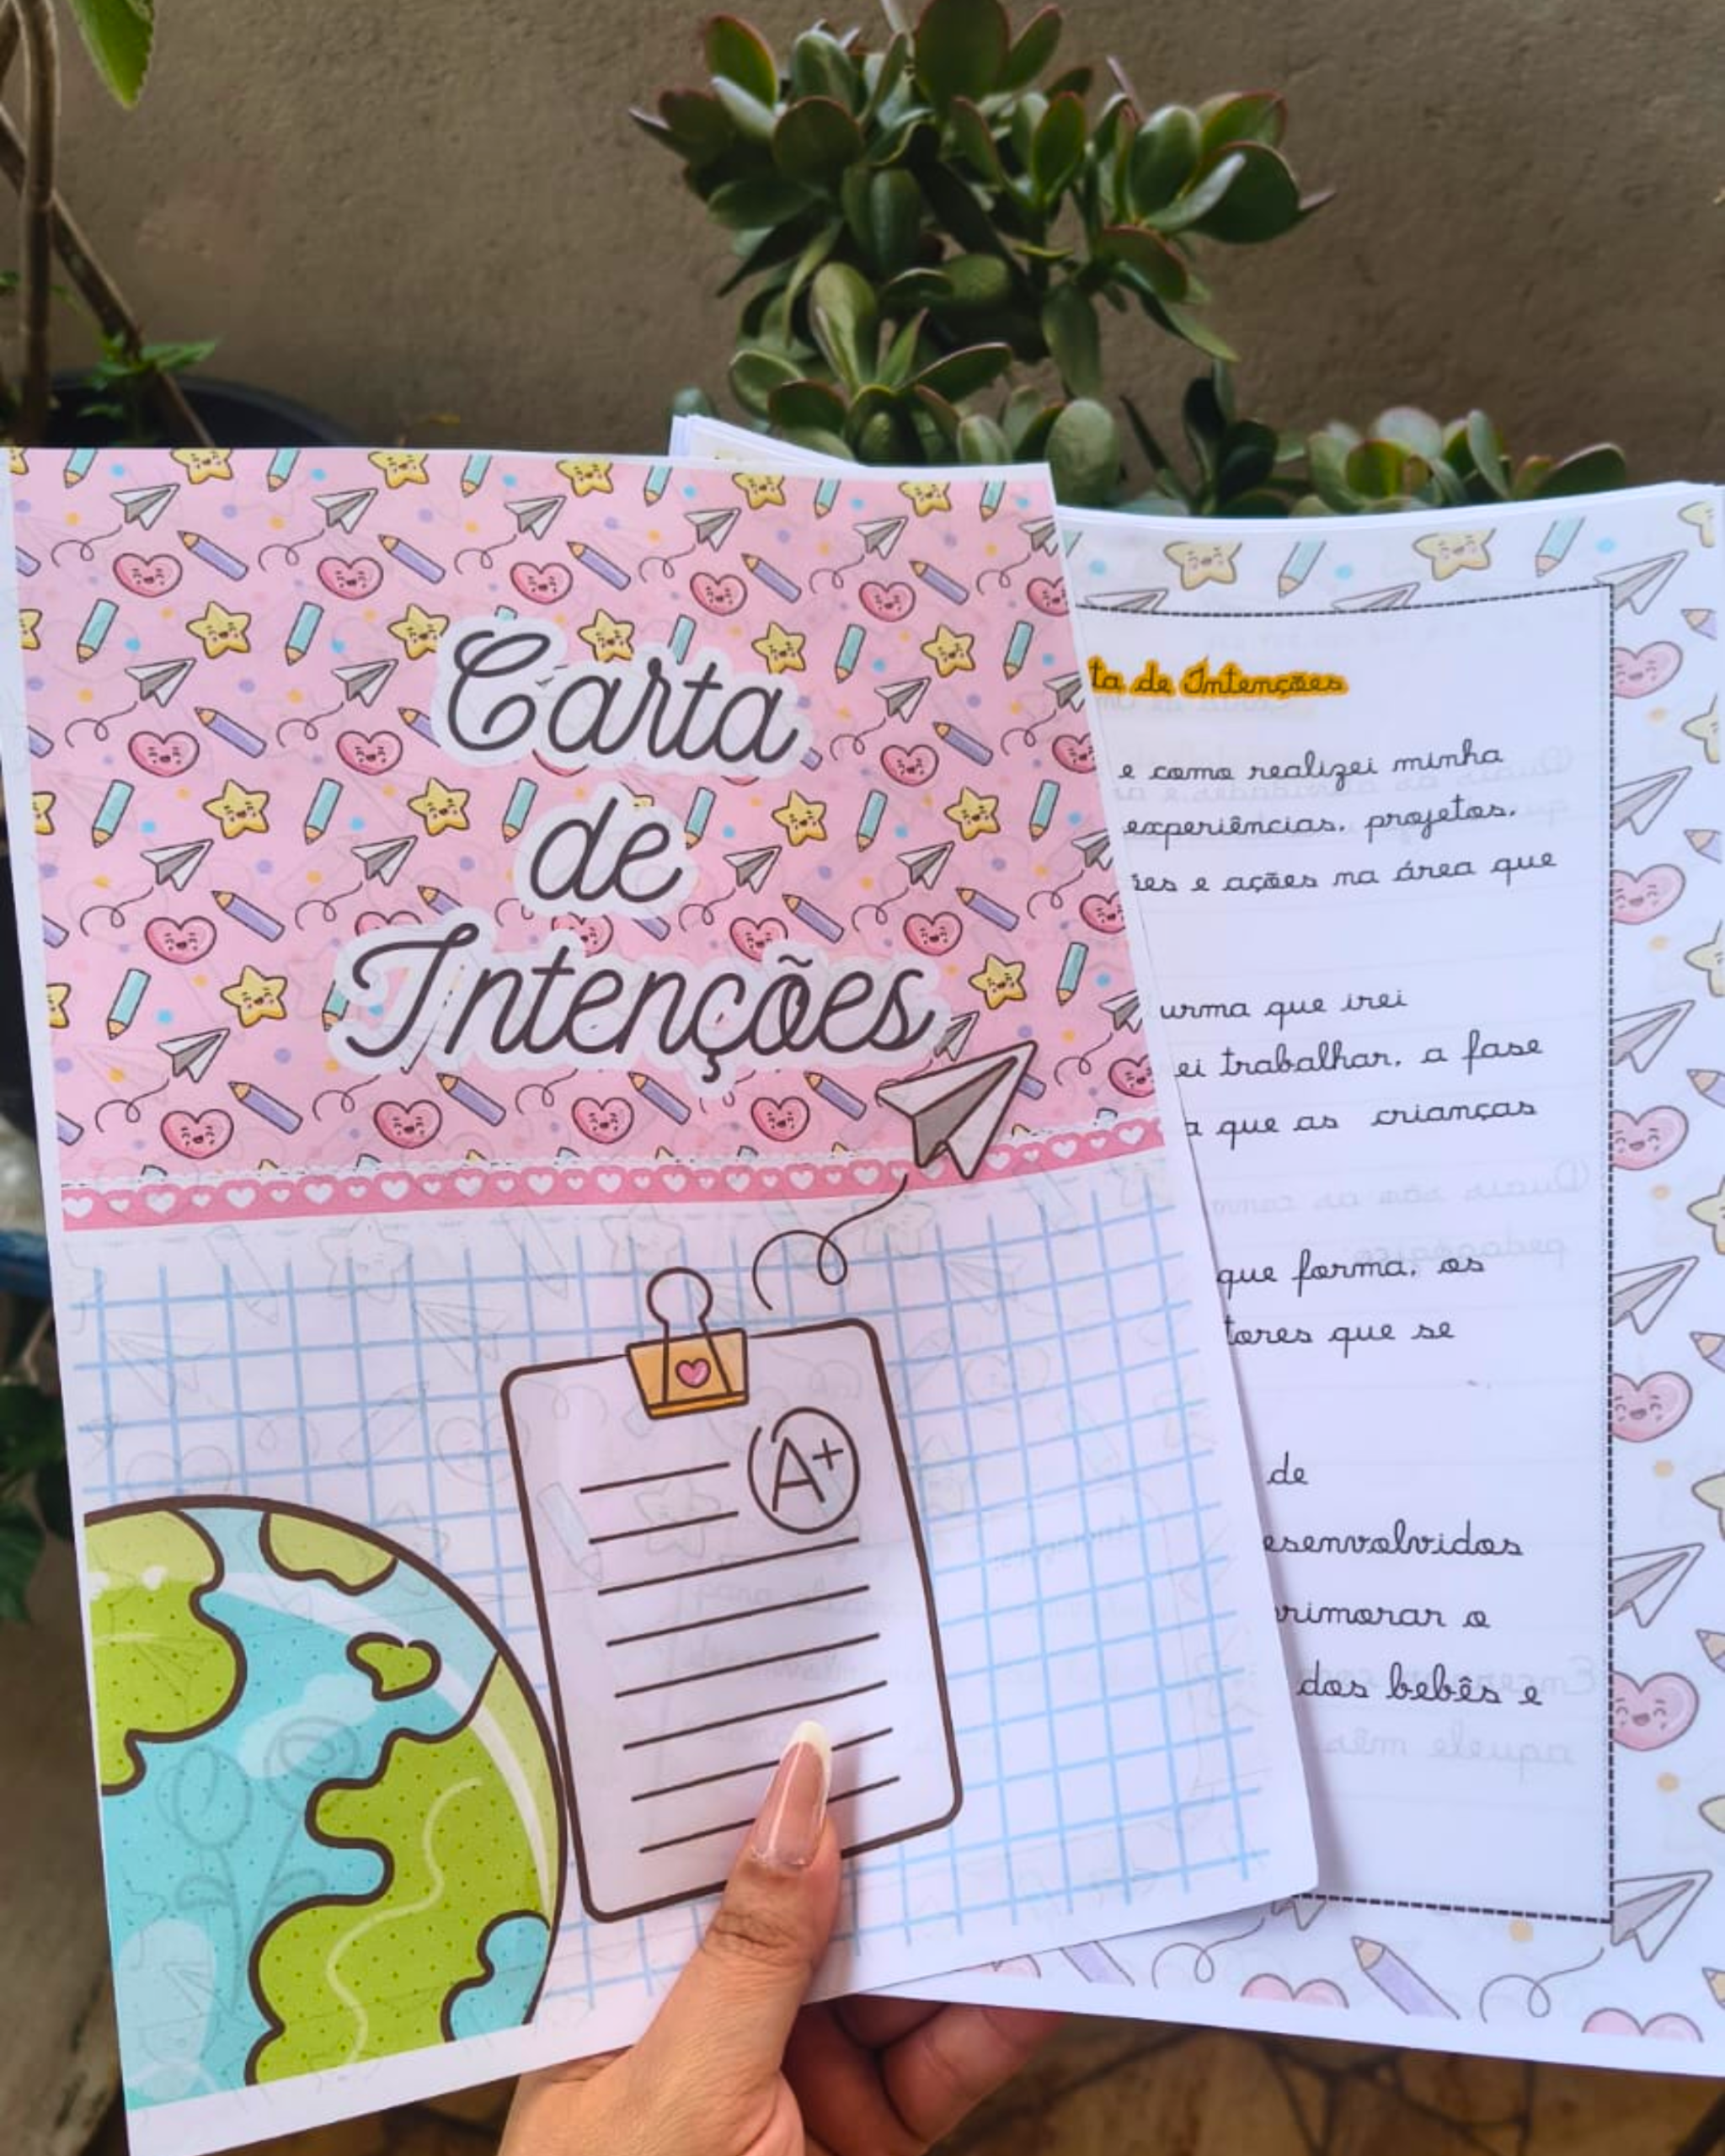 Carta
de
Intenções
A+
ta de Intenções
e como realizei minha
experiências, projetos,
ões e ações na área que
urma que irei
ei trabalhar, a fase
a que as crianças
que forma, os
tores que se
de
esenvolvidos
primorar o
dos bebês e